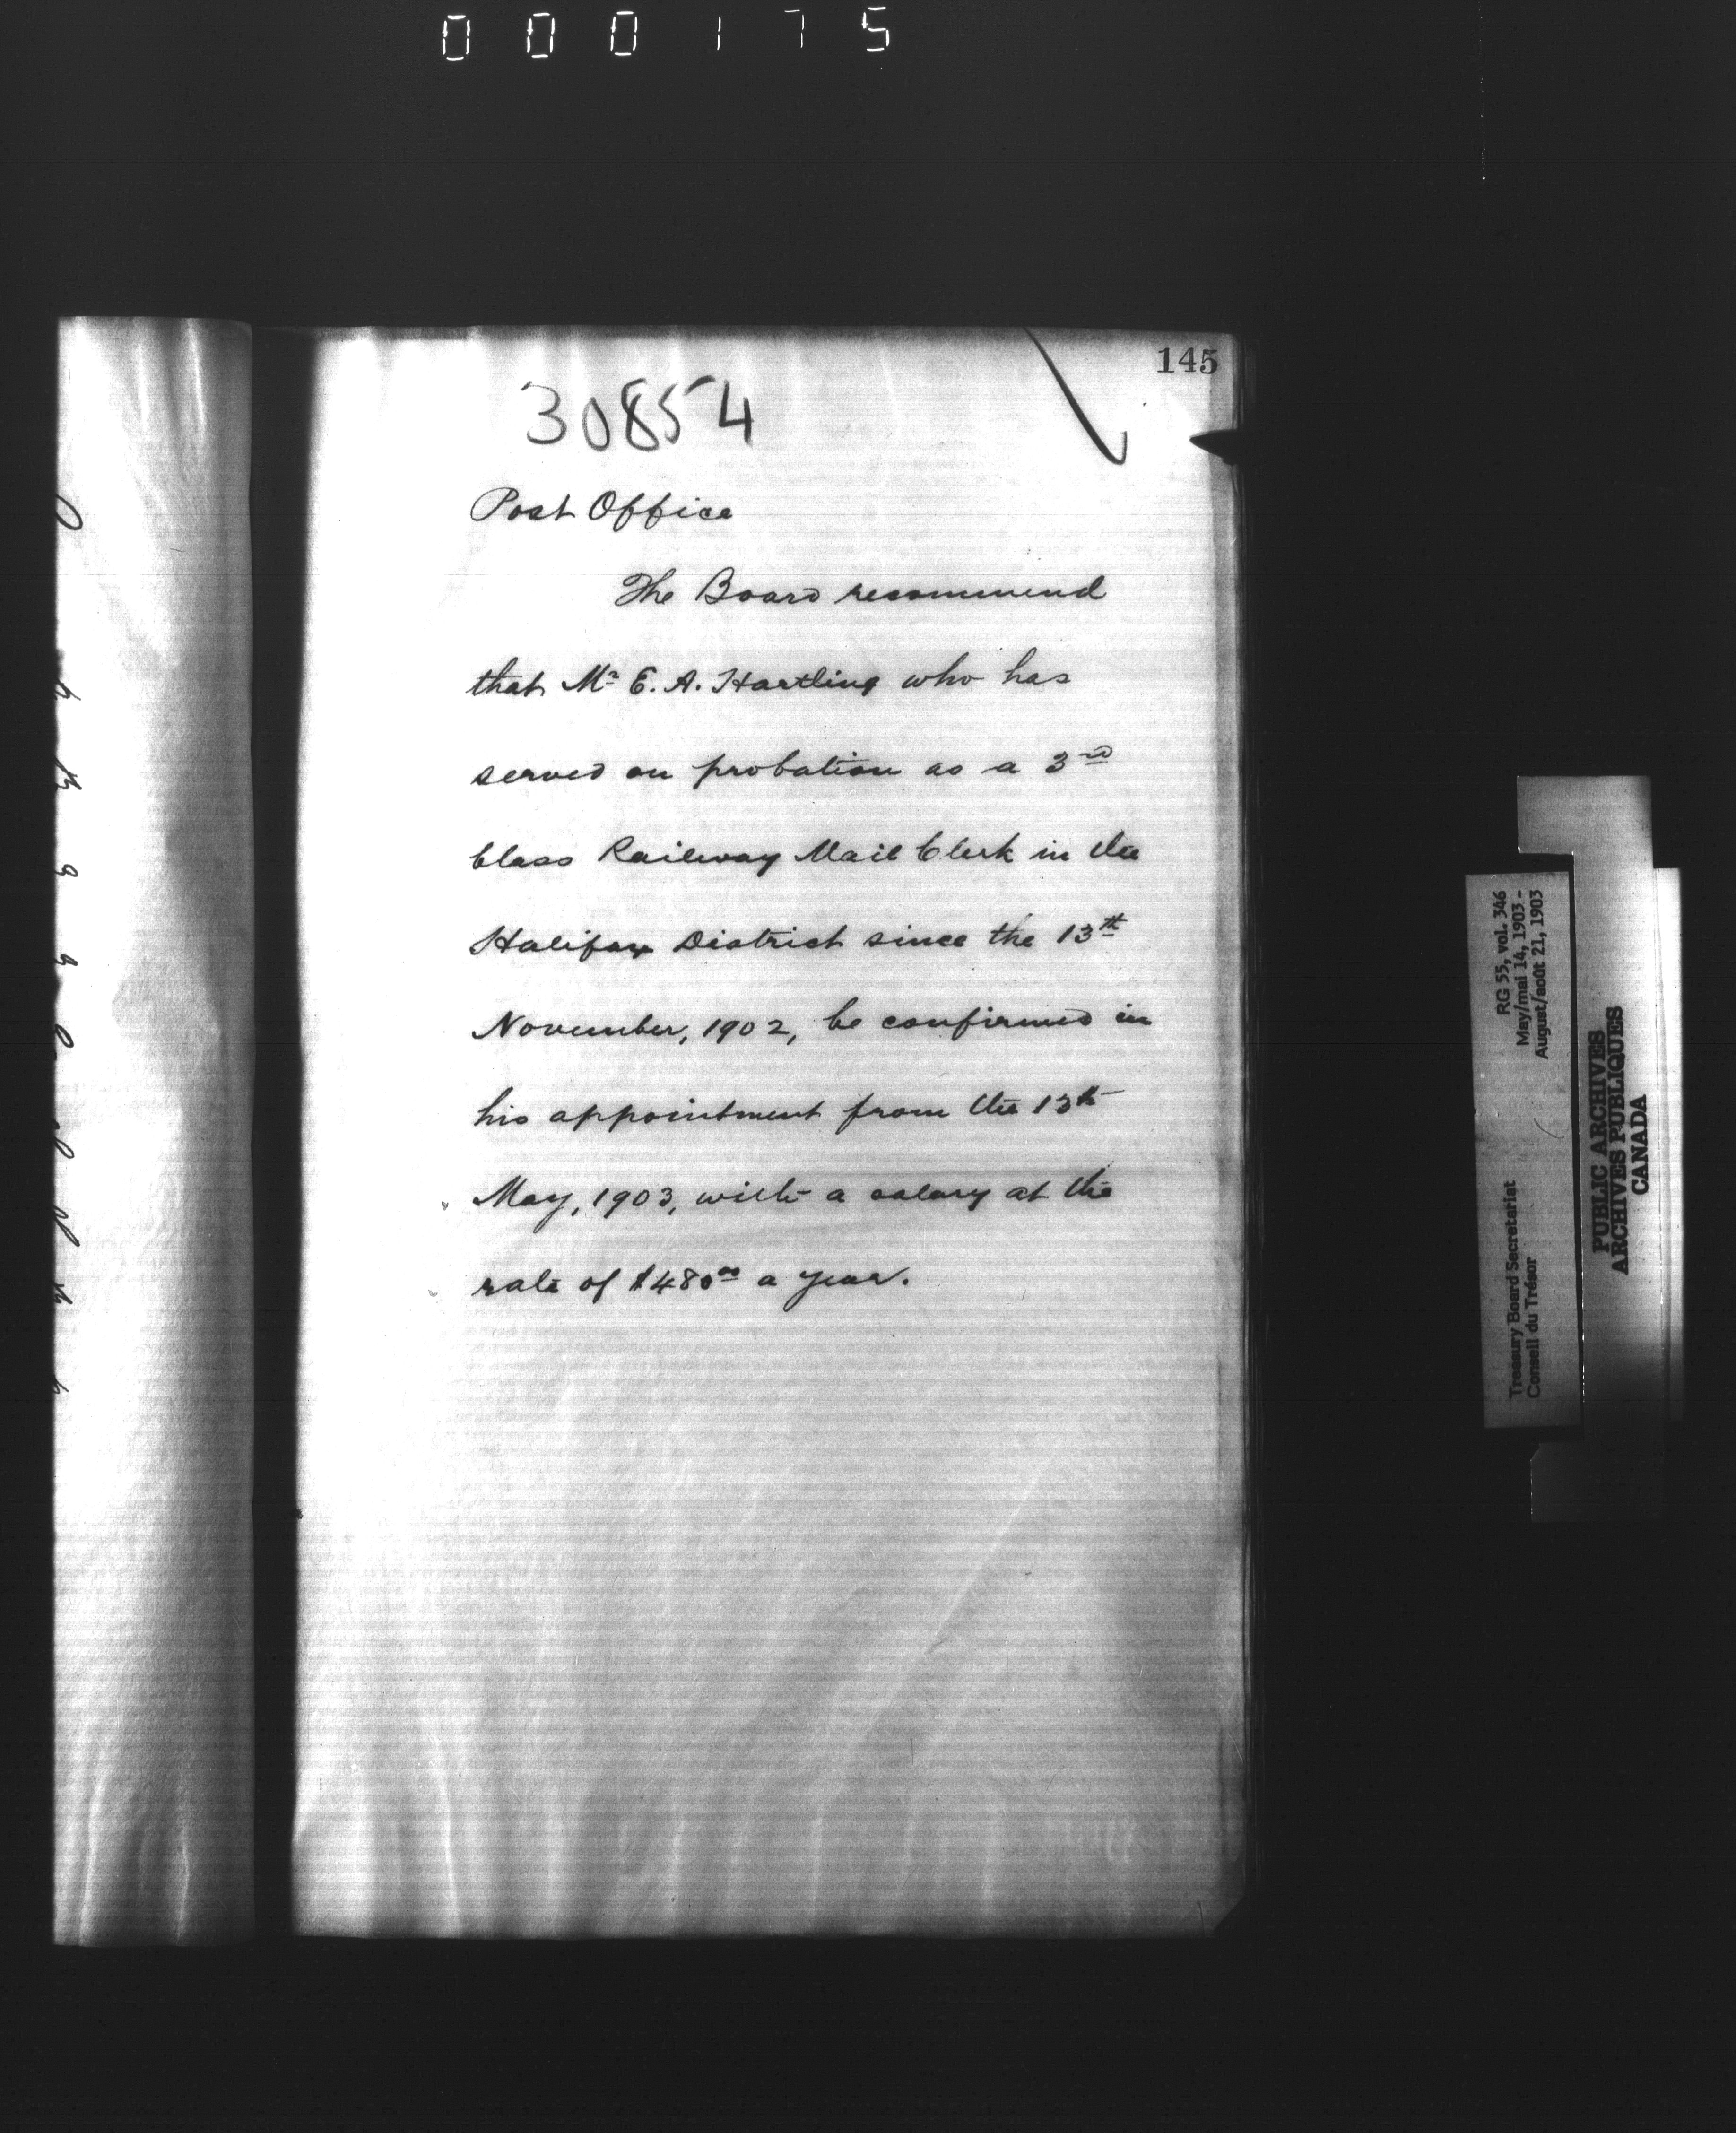 000175
145
30854
Post Office
The Board recommend
that Mr E. A. Hartling who has
served on probation as a 3rd
Class Railway Mail Clerk in the
Halifax District since the 13th
November, 1902, be confirmed in
his appointment from the 13th
May, 1903, with a salary at the
rate of $480.00 a year.
RG 55, vol. 346
May/mai 14, 1903 -
August/août 21, 1903
Treasury Board Secretariat
Conseil du Trésor
PUBLIC ARCHIVES
ARCHIVES PUBLIQUES
CANADA